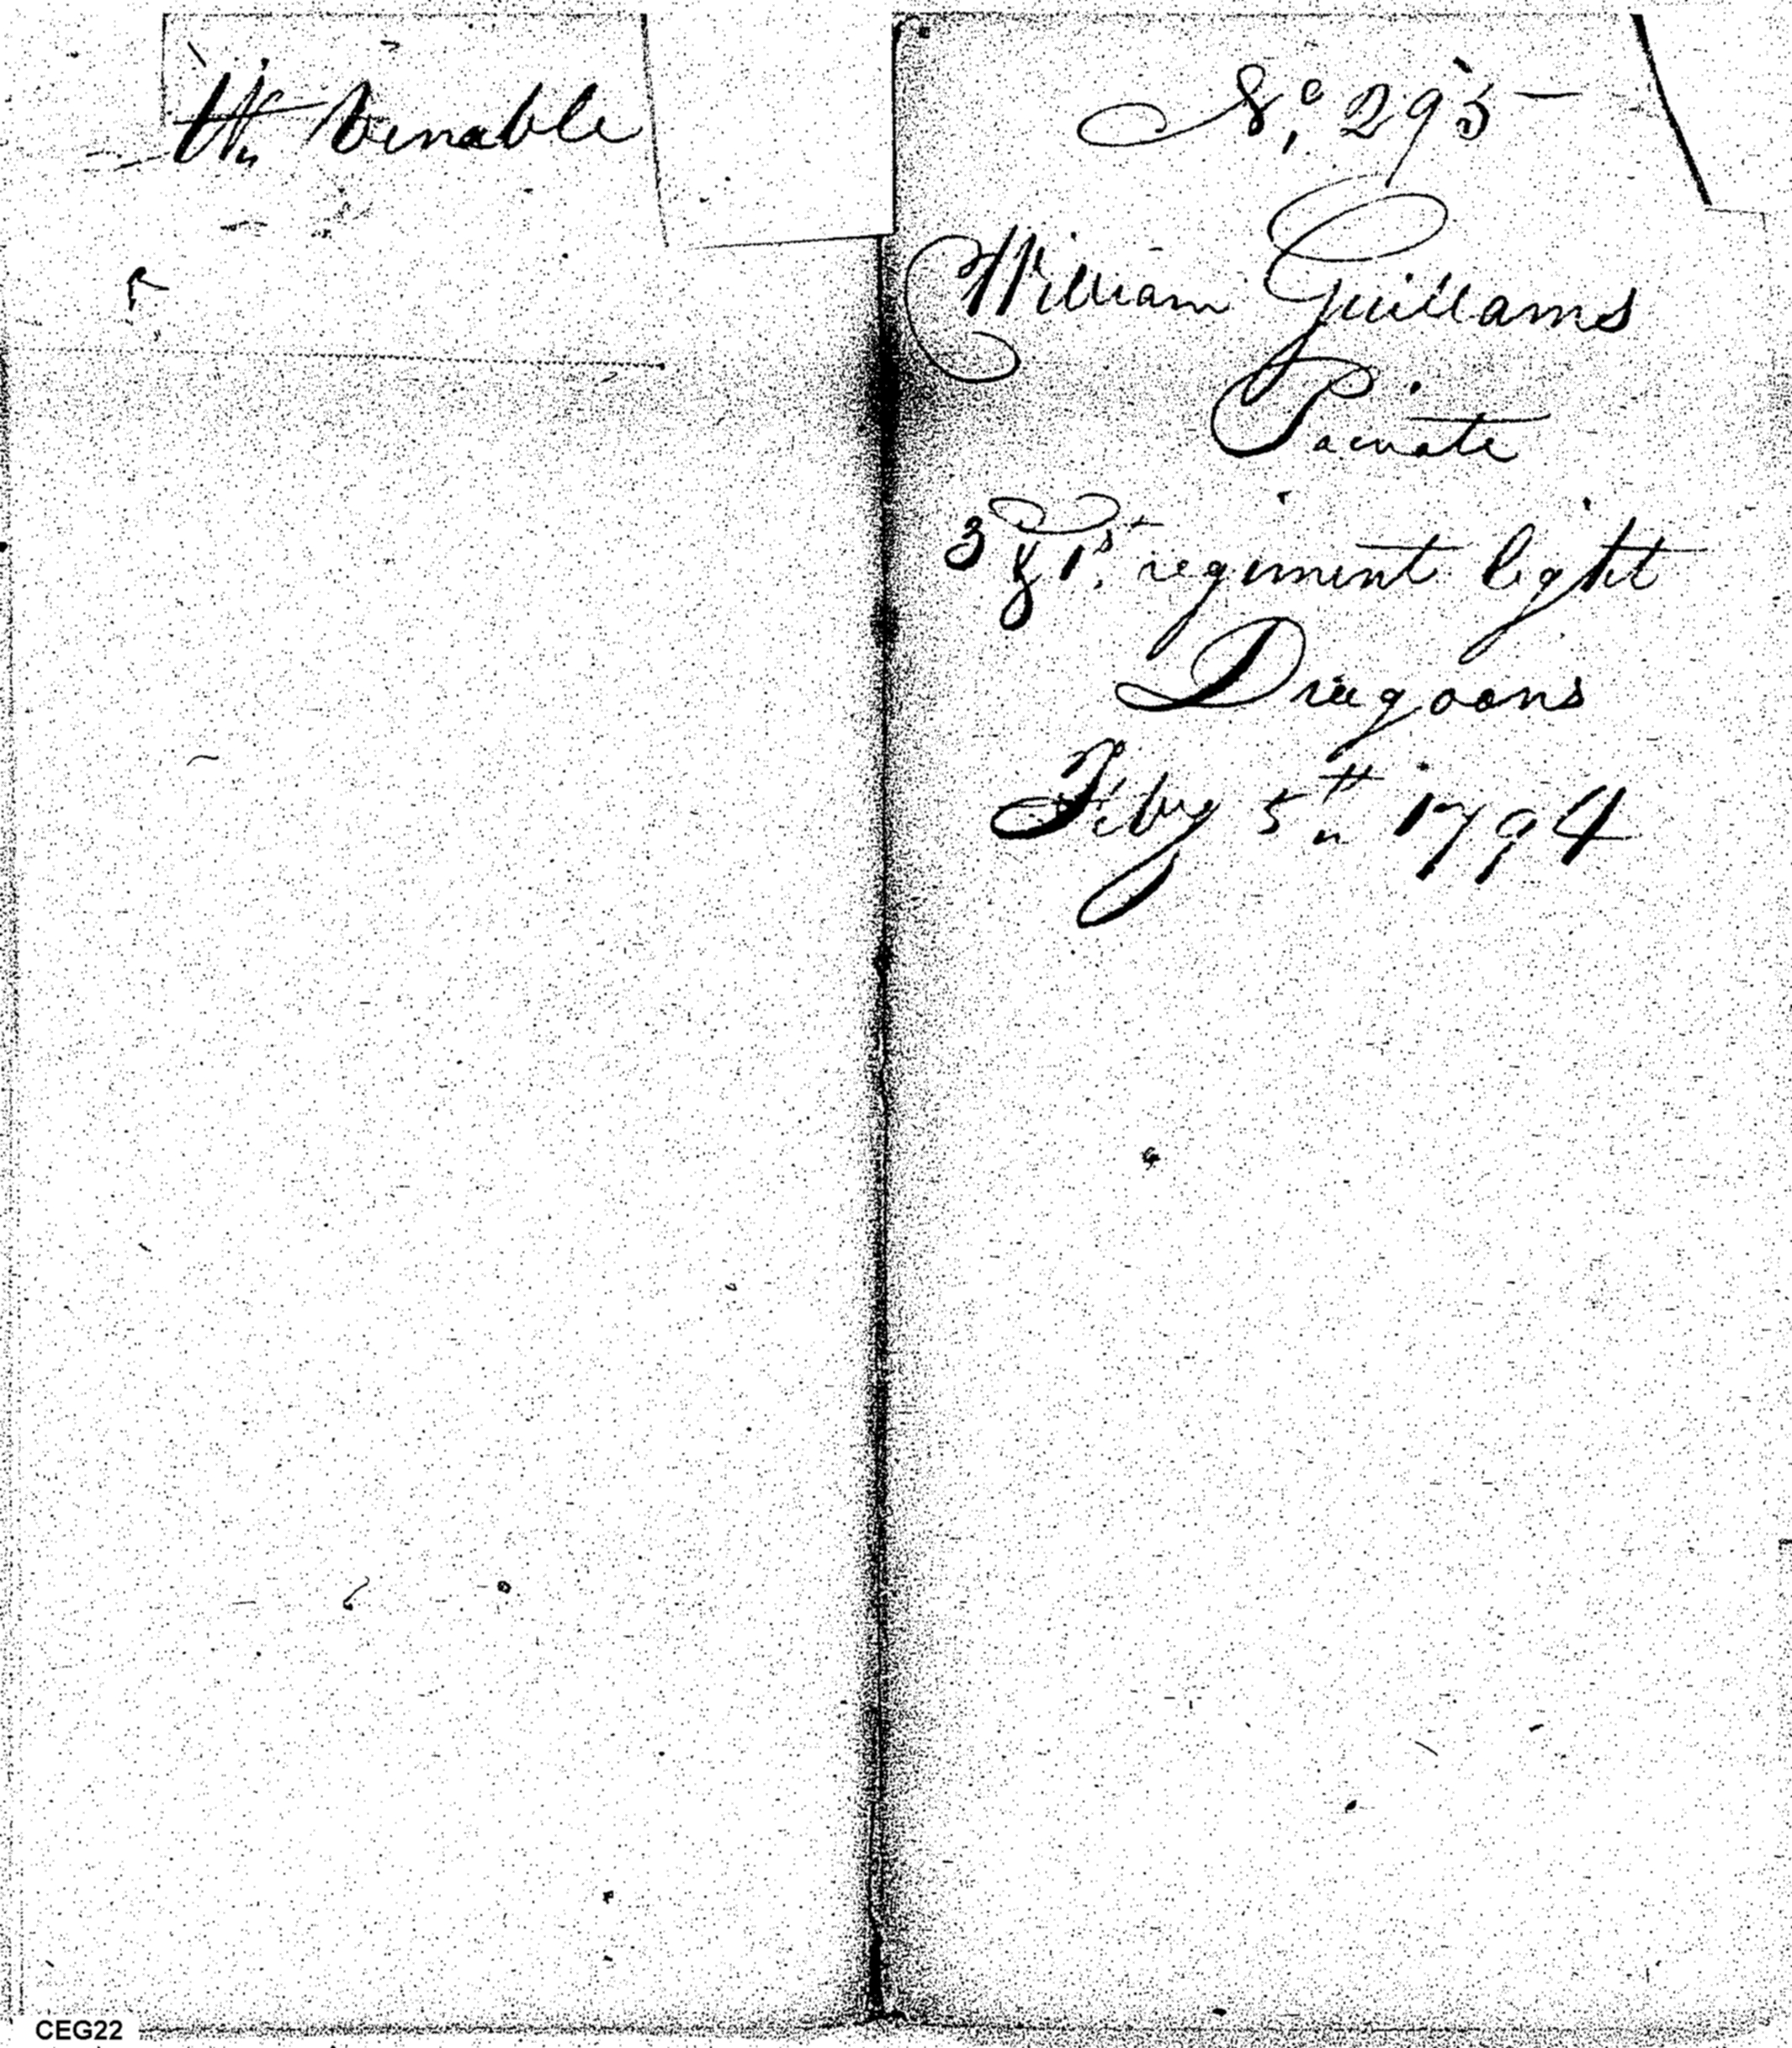 Wm Venable
No. 295
William Guillams
Private
3 & 1st regiment light
Dragoons
Feby 5th 1794
CEG22